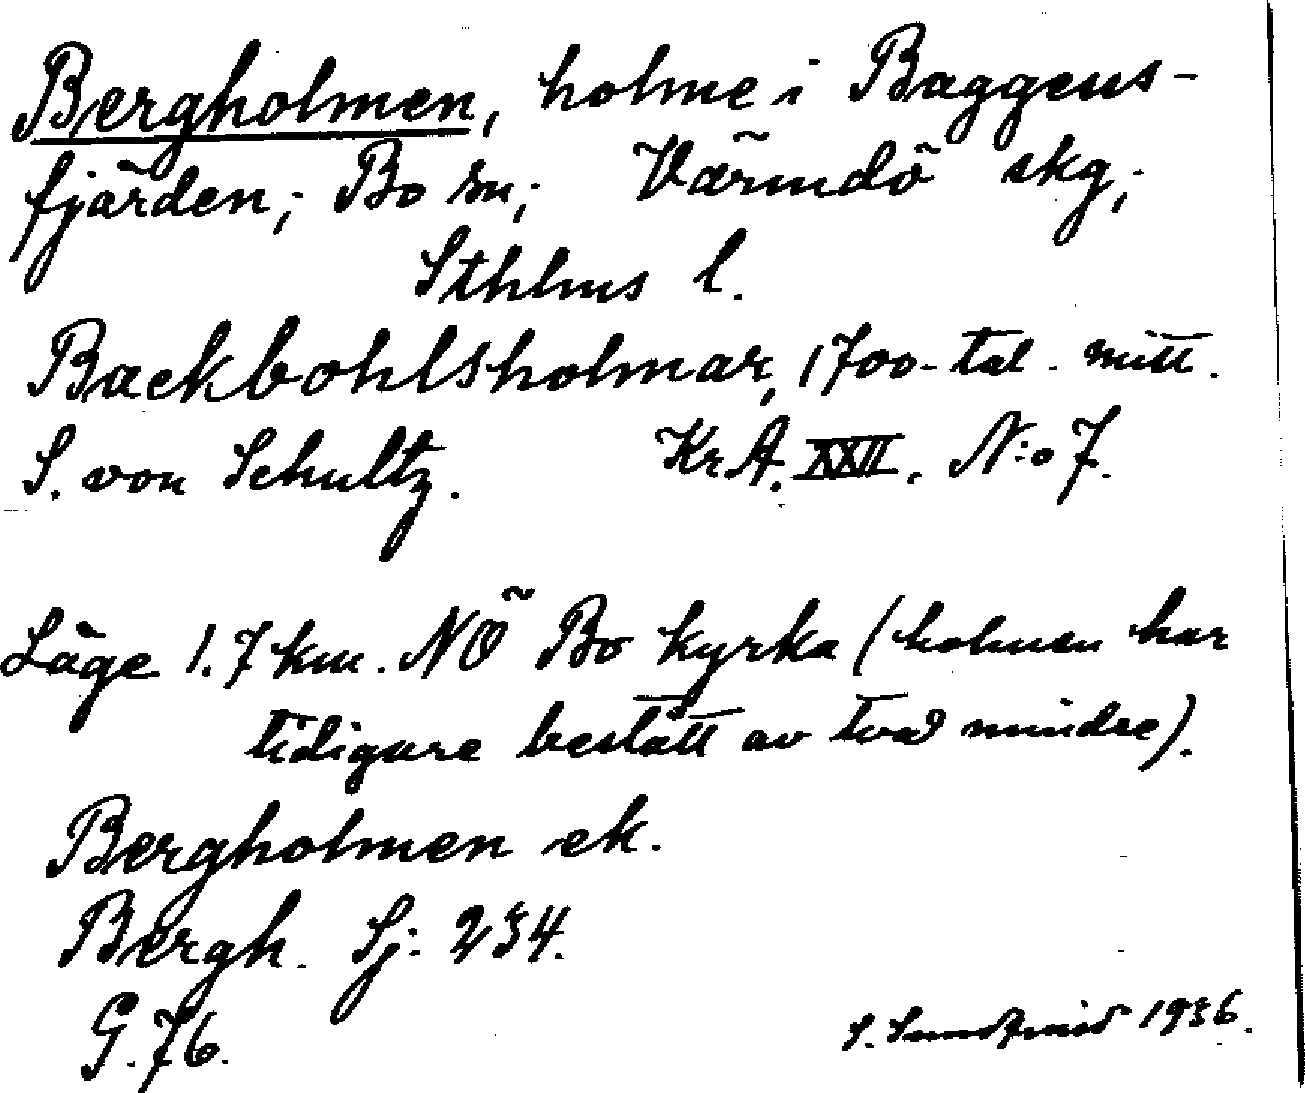 Bergholmen, holme i Baggens-
fjärden; Bo sn; Värmdö skg;
Sthlms l.
Backbohlsholmar, 1700-tal. mitt.
S. von Schultz. Kr.A. XXII. N:o 7.
Läge 1.7 km. NÖ Bo kyrka (holmen har
tidigare bestått av två mindre).
Bergholmen ek.
Bergh. Sj: 234.
G. 76.
S. 1936.